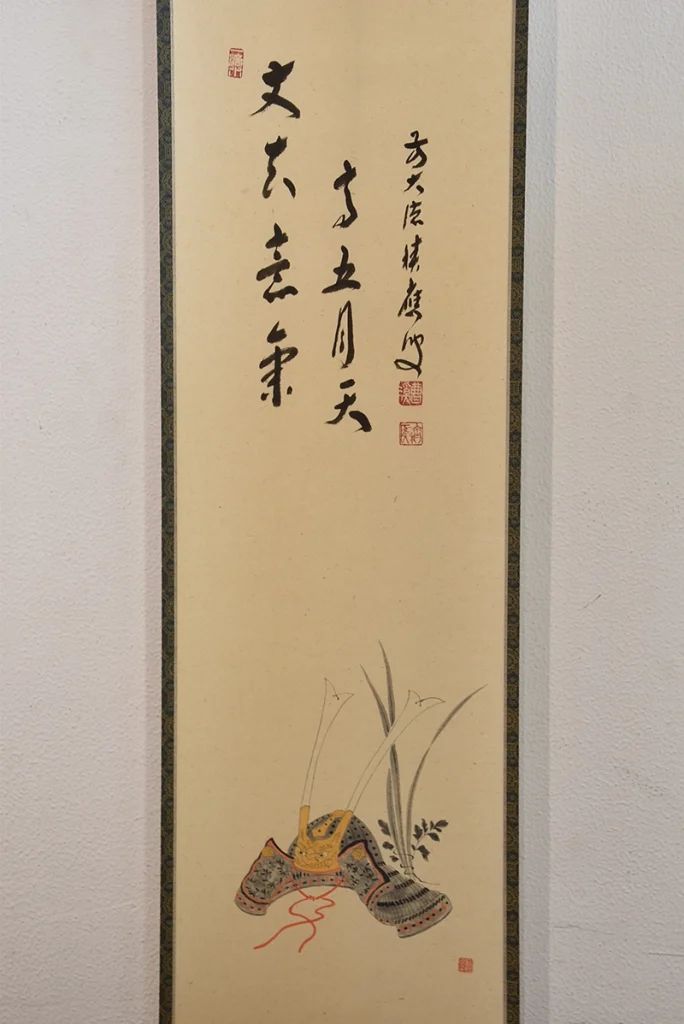 丈夫意氣
高五月天
前大徳積應叟